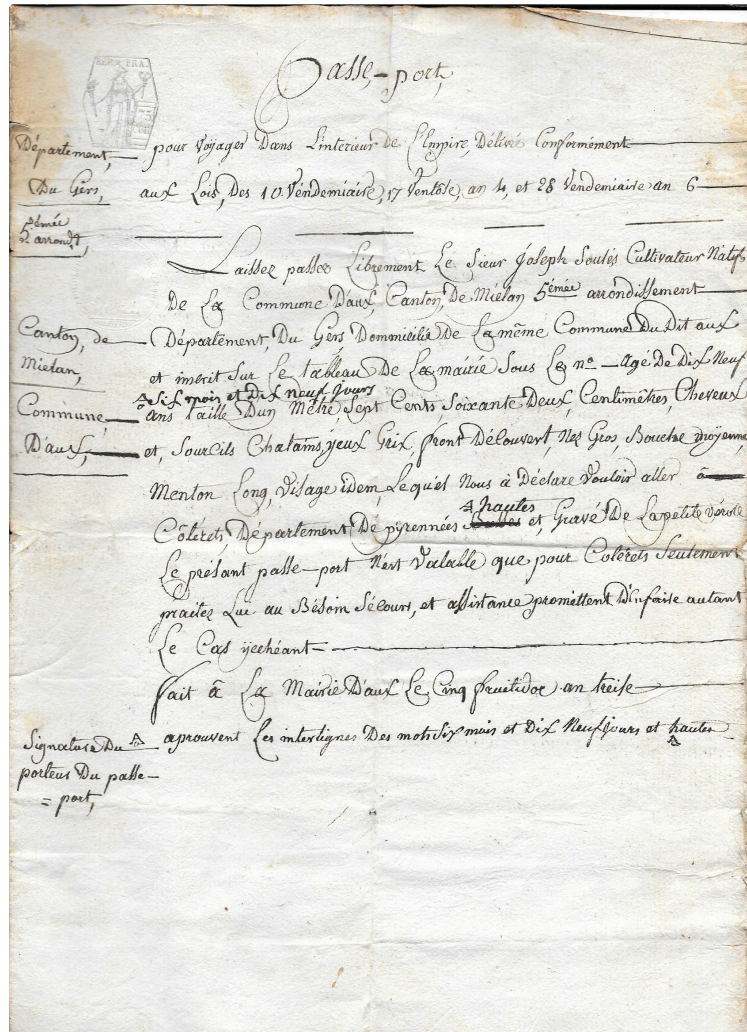 REP. FRA.
Passe-port,
Département, pour Voyager Dans L'interieur de L'Empire, Délivré Conformément
Du Gers, aux Lois, Des 10 Vendémiaire, 17 Ventôse, an 4, et 28 Vendemiaire an 6
5émée arrondt,
Laissez passer Librement Le Sieur Joseph Soulés Cultivateur Natif
De La Commune D'aux, Canton, De Miélan 5émée arrondissement
Canton, de Miélan, Département, Du Gers Domicilié De La même Commune Du Dit aux
et inscrit Sur Le tableau De La mairie Sous Le no - Agé De Dix Neuf
Six mois et Dix neuf Jours
Commune, D'aux, ans taille D'un Métre, Sept Cents Soixante Deux, Centimêtres, Cheveux
et, Sourcils Chatains, yeux Grix, front Découvert, Nez Gros, Bouche moyenne,
Menton Long, Visage idem, Lequel Nous à Déclaré Vouloir aller à
hautes
Côterets, Département De pyrennées et, Gravé De La petite vérole
Le présant passe-port N'est Valable que pour Coterets Seulement
praitez Lui au Bésoin Sécours, et assistance promettent D'en faire autant
Le Cas yechéant
fait à La Mairie D'aux Le Cinq fruitidor an treise
aprouvent Les interlignes Des mots Six mois et Dix Neuf Jours et hautes
Signature Du
porteur Du passe-
=port,